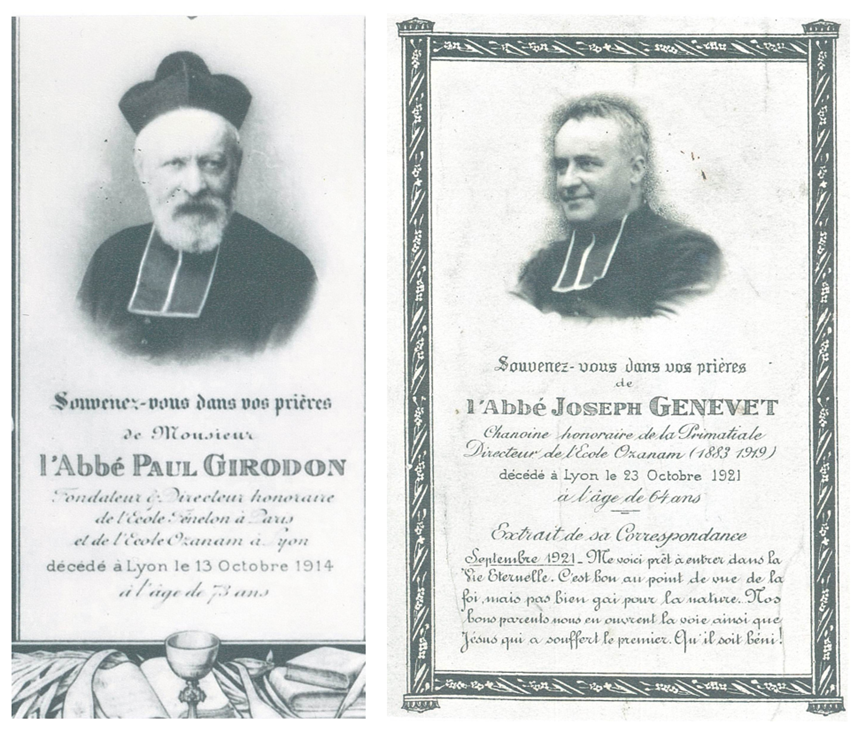 Souvenez-vous dans vos prières
de Monsieur
l'Abbé PAUL GIRODON
Fondateur & Directeur honoraire
de l'Ecole Fénelon à Paris
et de l'Ecole Ozanam à Lyon
décédé à Lyon le 13 Octobre 1914
à l'âge de 73 ans
Souvenez-vous dans vos prières
de
l'Abbé JOSEPH GENEVET
Chanoine honoraire de la Primatiale
Directeur de l'Ecole Ozanam (1883 1919)
décédé à Lyon le 23 Octobre 1921
à l'âge de 64 ans
Extrait de sa Correspondance
Septembre 1921_ Me voici prêt à entrer dans la
Vie Eternelle. C'est bon au point de vue de la
foi, mais pas bien gai pour la nature. Nos
bons parents nous en ouvrent la voie ainsi que
Jésus qui a souffert le premier. Qu'il soit béni!